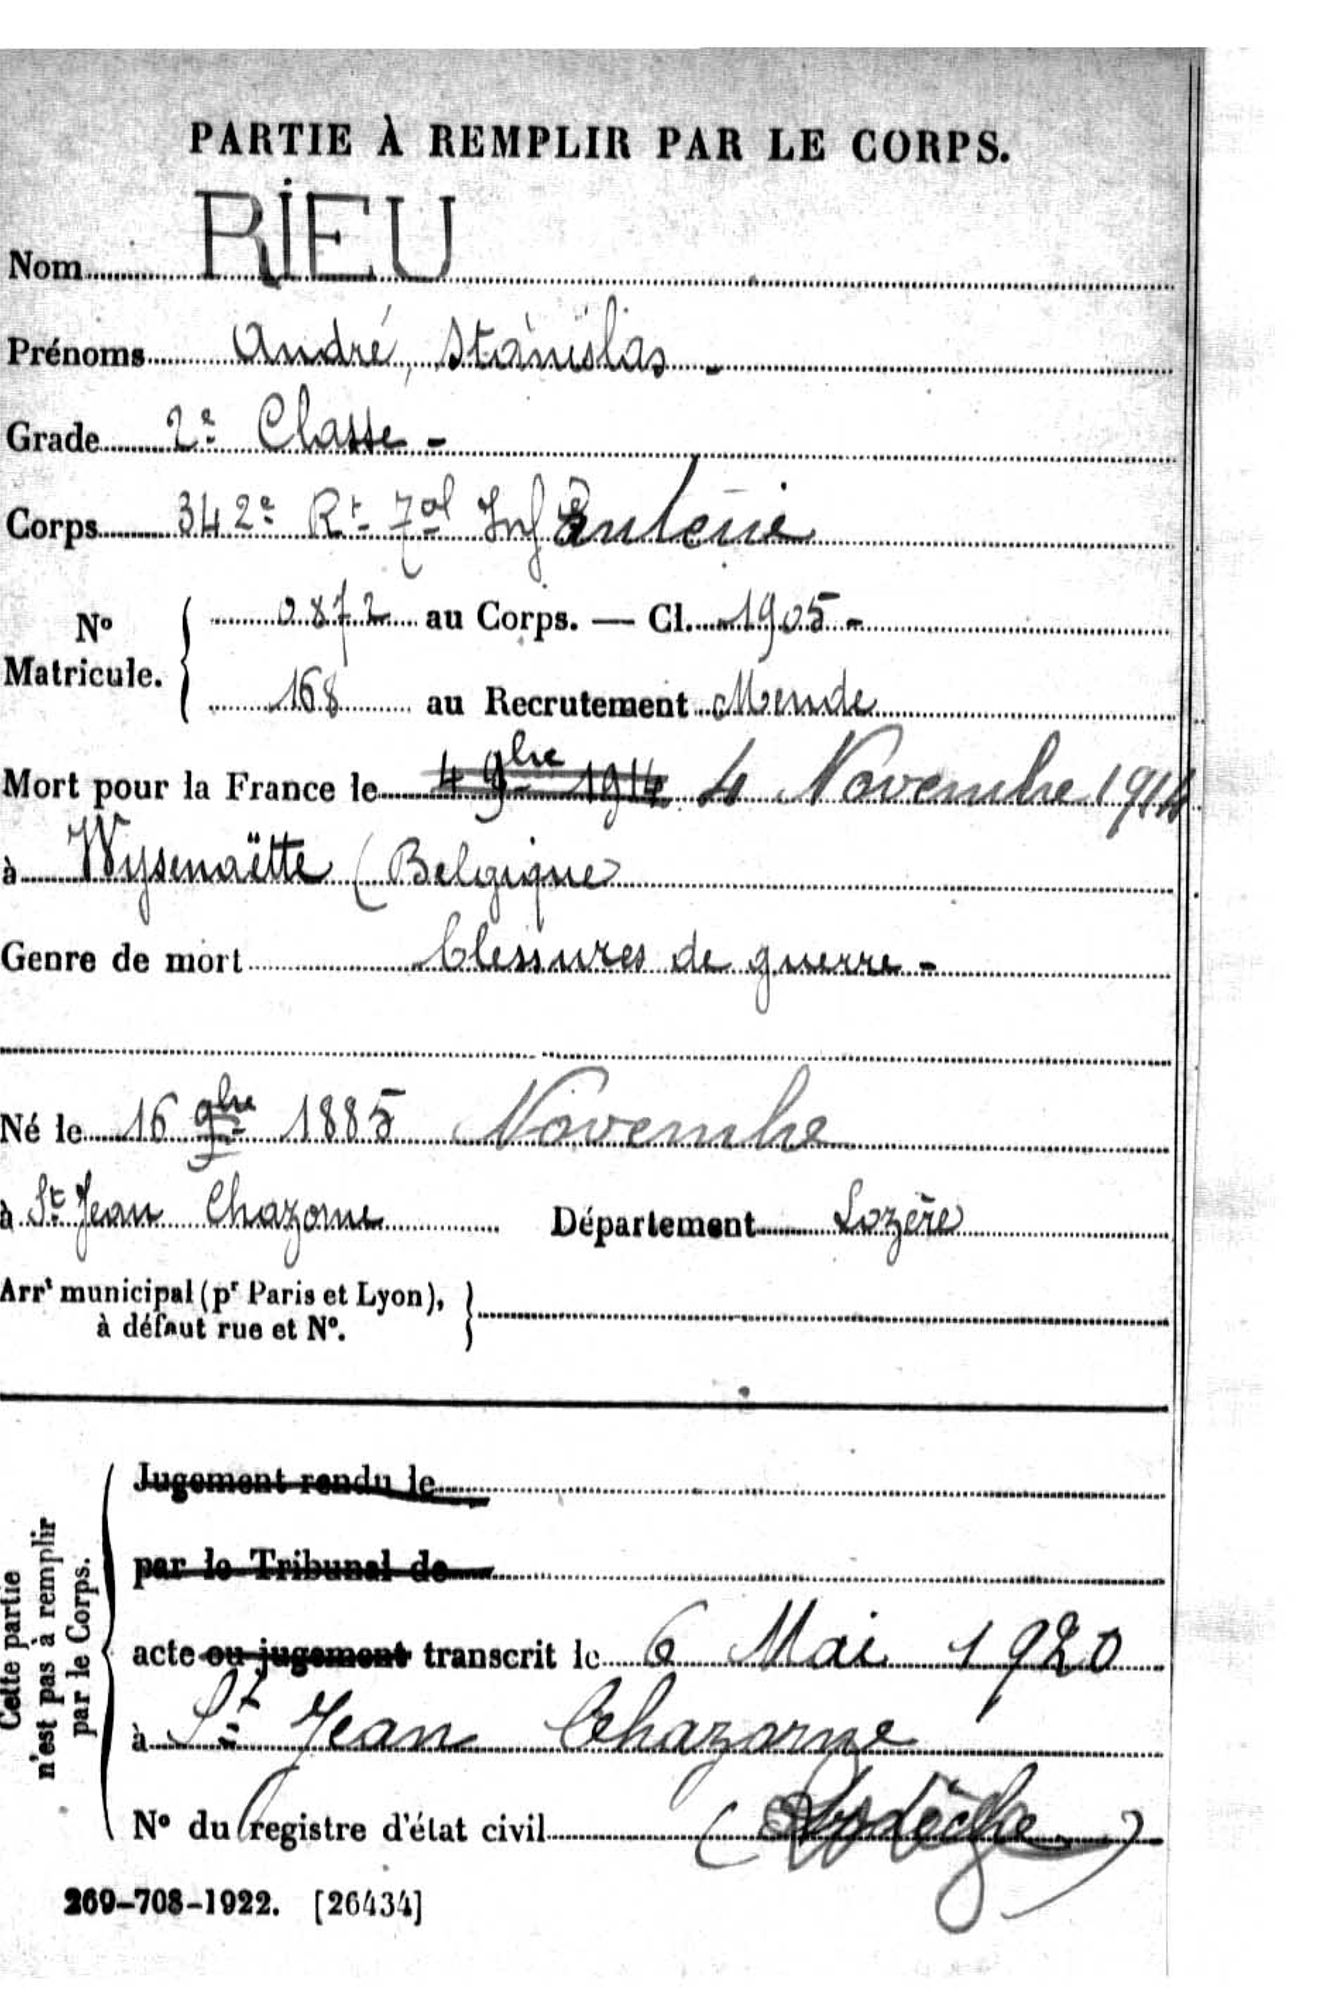 PARTIE À REMPLIR PAR LE CORPS.
Nom RIEU
Prénoms André, Stanislas -
Grade 2e Classe -
Corps 342e Rt d' Infanterie
No Matricule. 0872 au Corps. — Cl. 1905 -
168 au Recrutement Mende
Mort pour la France le 4 9bre 1914 4 Novembre 1914
à Wysenaëtte (Belgique
Genre de mort blessures de guerre -
Né le 16 9bre 1885 Novembre
à St Jean Chazorne Département Lozère
Arrt municipal (pr Paris et Lyon),
à défaut rue et No.
Cette partie
n'est pas à remplir
par le Corps.
Jugement rendu le
par le Tribunal de
acte ou jugement transcrit le 6 Mai 1920
à St Jean Chazorne
No du registre d'état civil
269-708-1922. [26434]